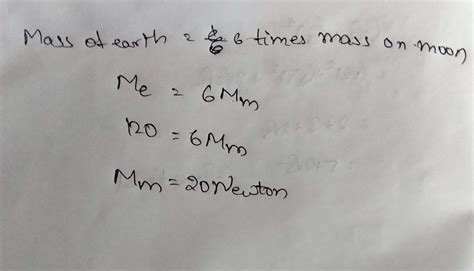 Mass of earth = 6 times mass on moon
Me = 6Mm
120 = 6Mm
Mm = 20 Newton